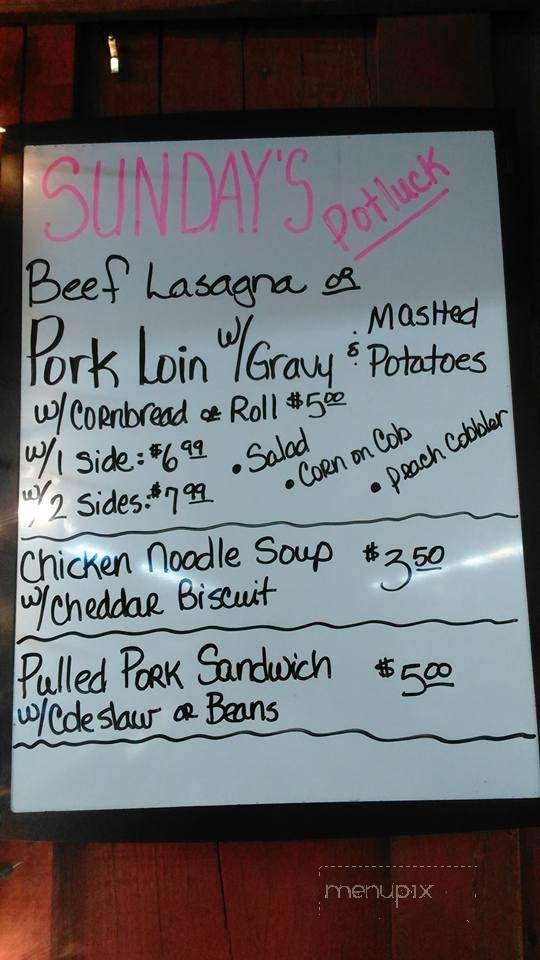 SUNDAY'S Potluck
Beef Lasagna OR
Pork Loin w/Gravy & Mashed Potatoes
w/Cornbread or Roll $5.00
w/1 Side: $6.99
w/2 Sides: $7.99
• Salad
• Corn on Cob
• Peach Cobbler
Chicken Noodle Soup $3.50
w/Cheddar Biscuit
Pulled Pork Sandwich $5.00
w/Coleslaw or Beans
menupix